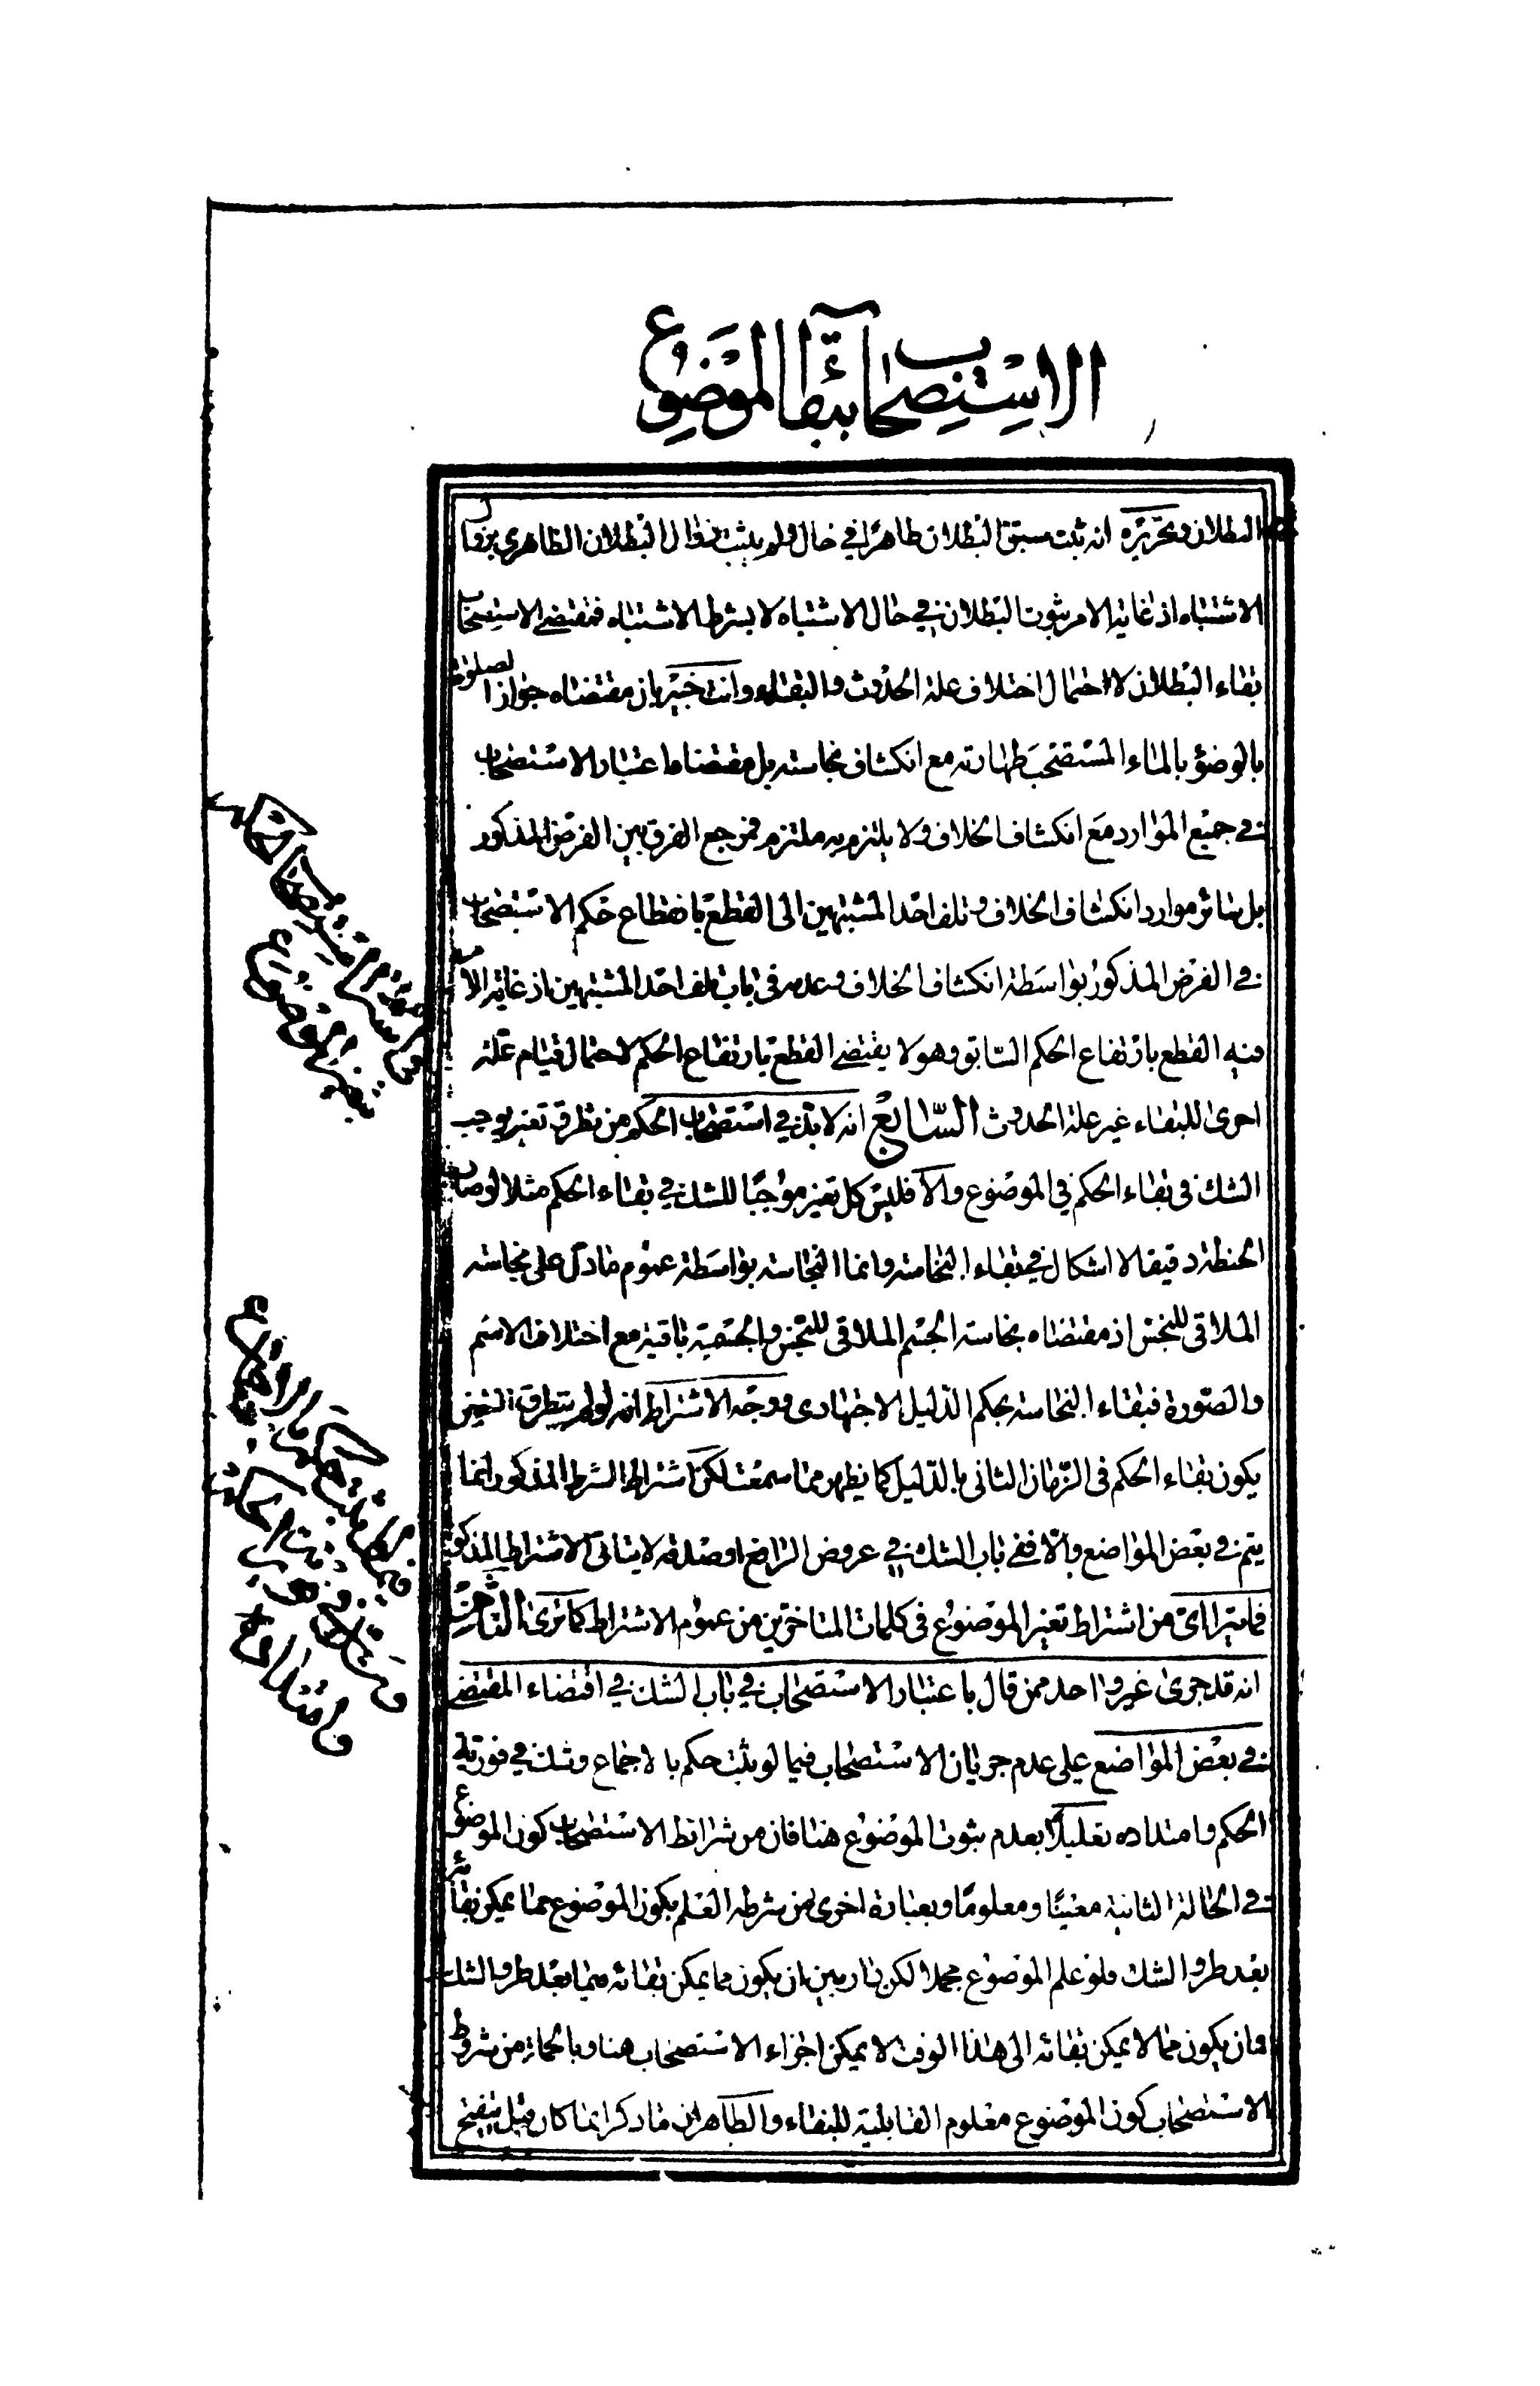 الاستصحاب بقاء الموضوع
البطلان وتحريره انه ثبت سبق البطلان ظاهرا في حال ولم يثبت زوال البطلان الظاهري بزوال
الاشتباه اذ غاية الامر ثبوت البطلان في حال الاشتباه لا بشرط الاشتباه فمقتضى الاستصحاب
بقاء البطلان لاحتمال اختلاف علة الحدوث والبقاء وانت خبير بان مقتضاه جواز الصلوة
بالوضوء بالماء المستصحب طهارته مع انكشاف نجاسته بل مقتضاه اعتبار الاستصحاب
في جميع الموارد مع انكشاف الخلاف ولا يلتزم به ملتزم فمرجع الفرق بين الفرض المذكور
بل سائر موارد انكشاف الخلاف وتلف احد المشتبهين الى القطع بانقطاع حكم الاستصحاب
في الفرض المذكور بواسطة انكشاف الخلاف وعدمه في باب تلف احد المشتبهين اذ غاية الامر
فيه القطع بارتفاع الحكم السابق وهو لا يقتضى القطع بارتفاع الحكم لاحتمال قيام علة
اخرى للبقاء غير علة الحدوث السابع انه لا بد في استصحاب الحكم من تطرق تغير يوجب
الشك في بقاء الحكم في الموضوع والا فليس كل تغير موجبا للشك في بقاء الحكم مثلا لو صار
الحنطة دقيقا لا اشكال في بقاء النجاسة وانما النجاسة بواسطة عموم ما دل على نجاسة
الملاقى للنجس اذ مقتضاه نجاسة الجسم الملاقى للنجس والجسمية باقية مع اختلاف الاسم
والصورة فبقاء النجاسة بحكم الدليل الاجتهادى ووجه الاشتراط انه لو لم يتطرق التغير
يكون بقاء الحكم في الزمان الثانى بالدليل كما يظهر مما سمعت لكن اشتراط الشرط المذكور انما
يتم في بعض المواضع والا ففى باب الشك في عروض الرافع او صدقه لا يتاتى الاشتراط المذكور
فما يترااى من اشتراط تغير الموضوع في كلمات المتاخرين من عموم الاشتراط كما ترى الثامن
انه قد جرى غير واحد ممن قال باعتبار الاستصحاب في باب الشك في اقتضاء المقتضى
في بعض المواضع على عدم جريان الاستصحاب فيما لو ثبت حكم بالاجماع وشك في فوريته
الحكم وامتداده تعليلا بعدم ثبوت الموضوع هنا فان من شرائط الاستصحاب كون الموضوع
في الحالة الثانية معينا ومعلوما وبعبارة اخرى من شرطه العلم بكون الموضوع مما يمكن بقائه
بعد طرو الشك فلو علم الموضوع مجملا لكن دار بين ان يكون مما يمكن بقائه فيما بعد طرو الشك
وان يكون مما لا يمكن بقائه الى هذا الوقت لا يمكن اجراء الاستصحاب هنا وبالجملة من شروط
الاستصحاب كون الموضوع معلوم القابلية للبقاء والظاهر ان ما ذكر انما كان قبل تنقيح